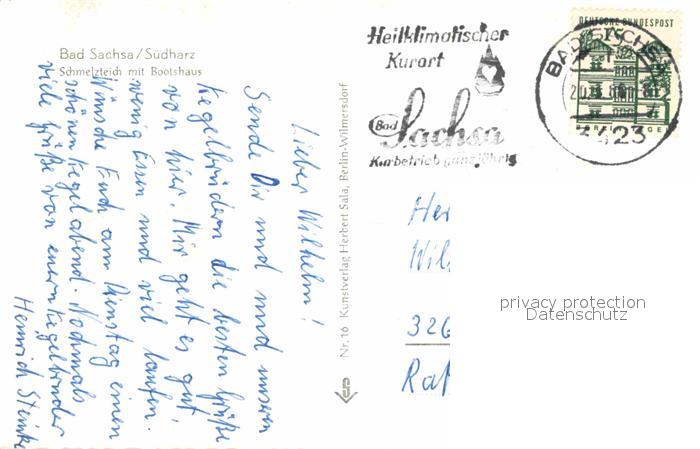 Bad Sachsa/Südharz
Schmelzteich mit Bootshaus
Lieber Wilhelm!
Sende Dir und und unsern
Kegelbrüdern die besten Grüße
von hier. Mir geht es gut,
wenig Essen und viel laufen.
Wünsche Euch am Dienstag einen
schönen Kegelabend. Nochmals
viele Grüße von euerm Kegelbruder
Heinrich
Nr. 16 Kunstverlag Herbert Sala, Berlin-Wilmersdorf
Heilklimatischer
Kurort
Bad Sachsa
Kurbetrieb ganzjährig
DEUTSCHE BUNDESPOST
BAD SACHSA
Her
Wil
326
privacy protection
Datenschutz